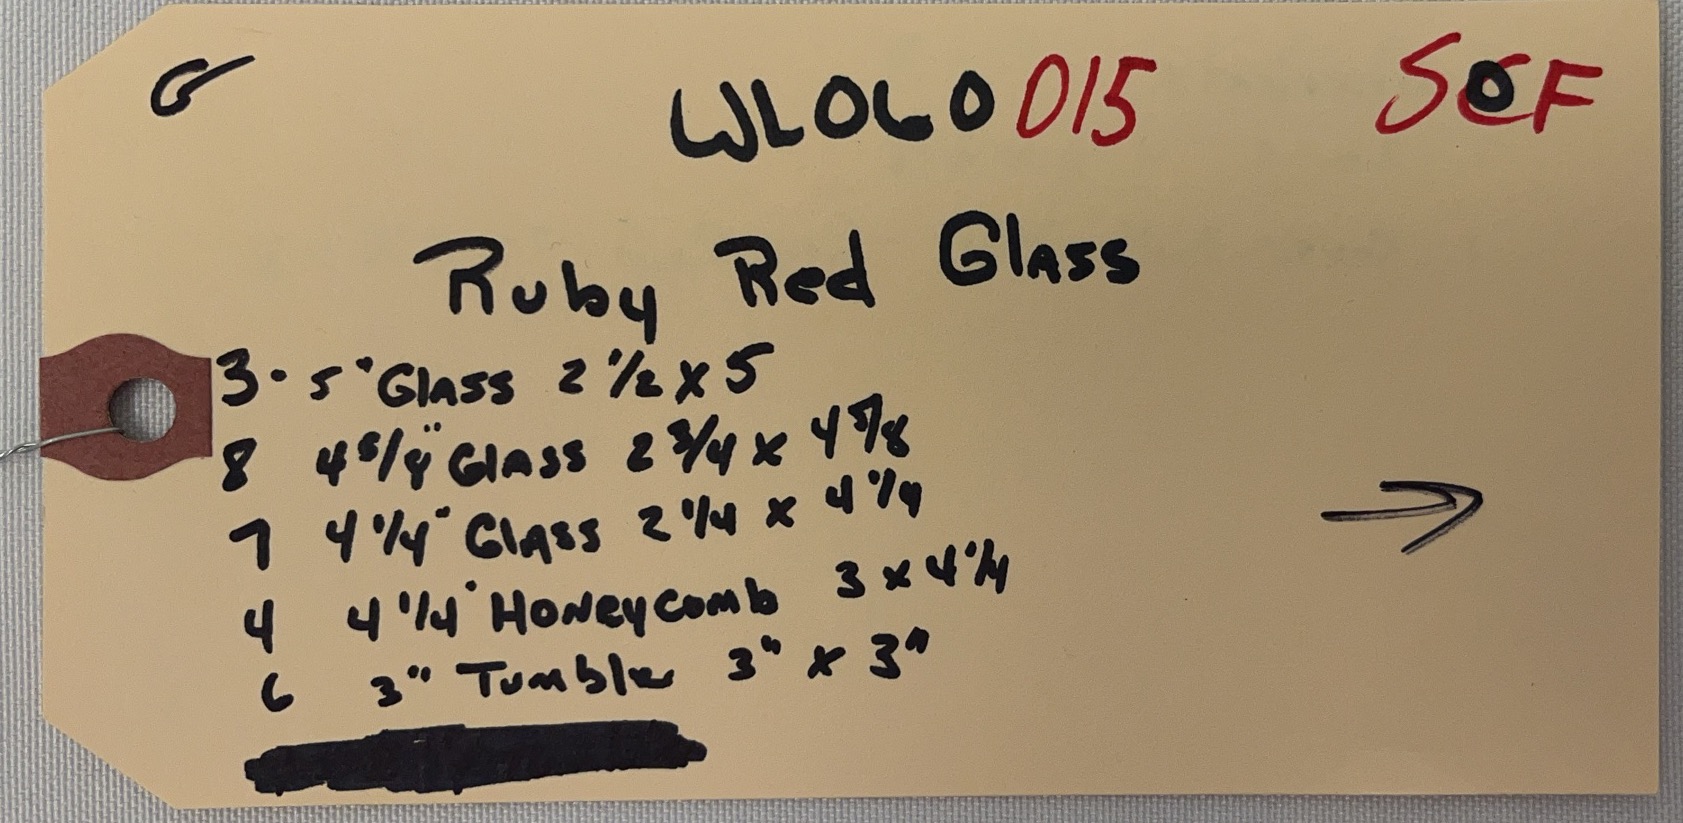 G WL060015 SCF
Ruby Red Glass
3 - 5" Glass 2 1/2 x 5
8 4 5/8" Glass 2 3/4 x 4 5/8
7 4 1/4" Glass 2 1/4 x 4 1/4
4 4 1/4" Honeycomb 3 x 4 1/4
6 3" Tumbler 3" x 3"